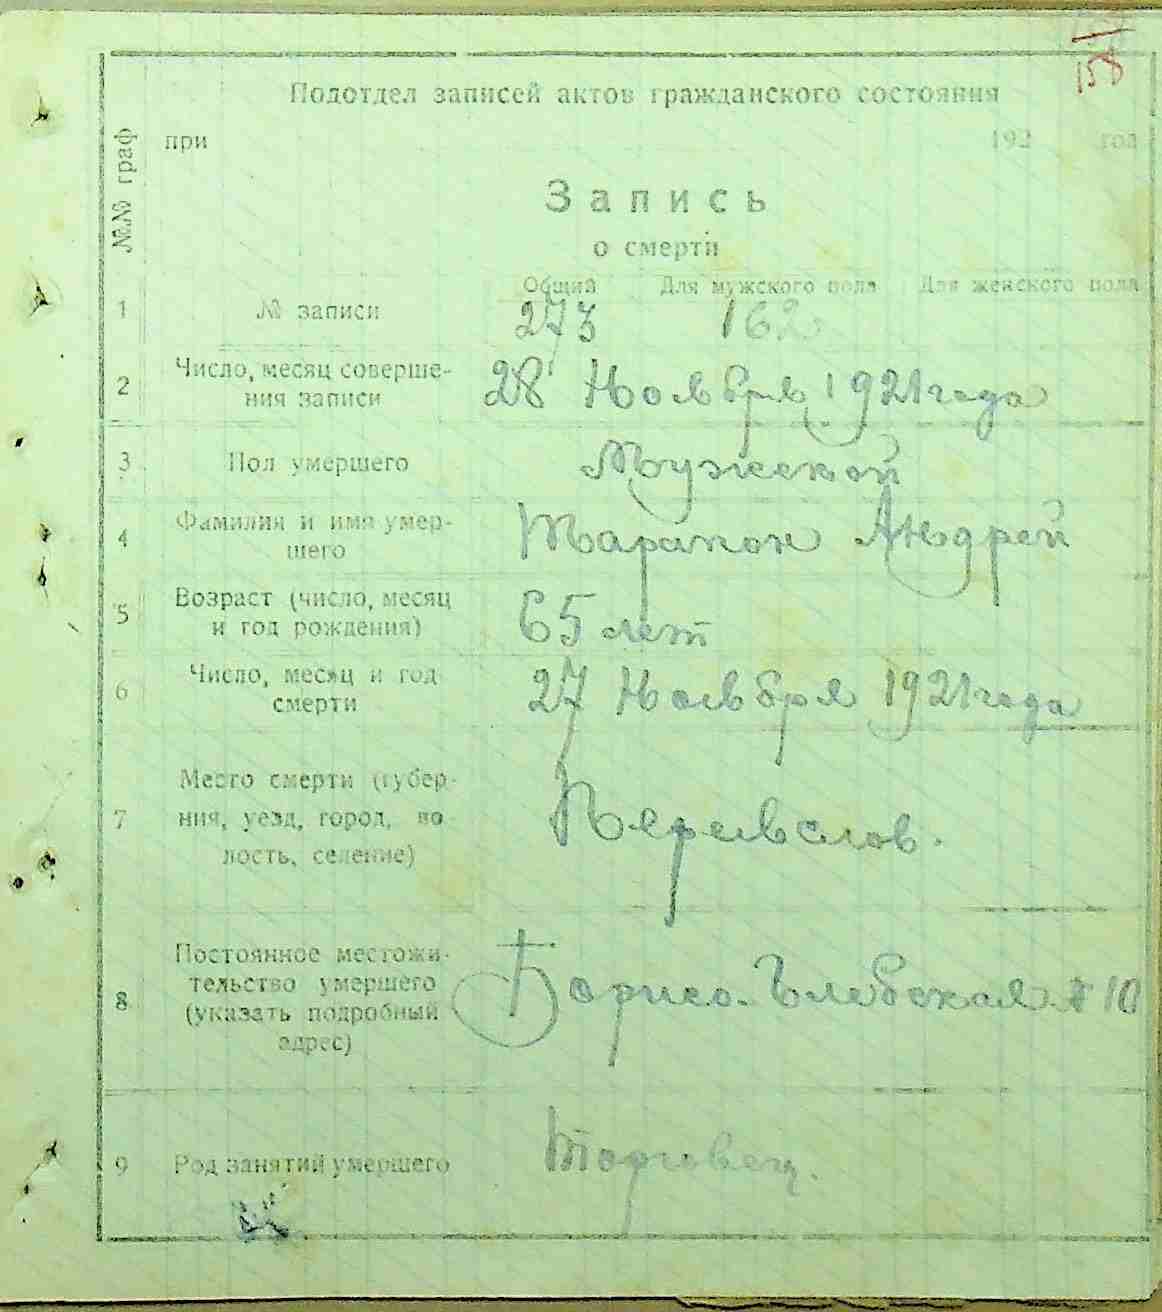 158
Подотдел записей актов гражданского состояния
№№ граф
при 192 год
Запись
о смерти
Общий Для мужского пола Для женского пола
1 № записи 273 162
2 Число, месяц соверше-
ния записи 28 Ноября 1921 года
3 Пол умершего Мужской
4 Фамилия и имя умер-
шего Тарапон Андрей
5 Возраст (число, месяц
и год рождения) 65 лет
6 Число, месяц и год
смерти 27 Ноября 1921 года
7 Место смерти (губер-
ния, уезд, город, во
лость, селение)
8 Постоянное местожи-
тельство умершего
(указать подробный
адрес) Борисо-Глебская 10
9 Род занятий умершего Торговец.